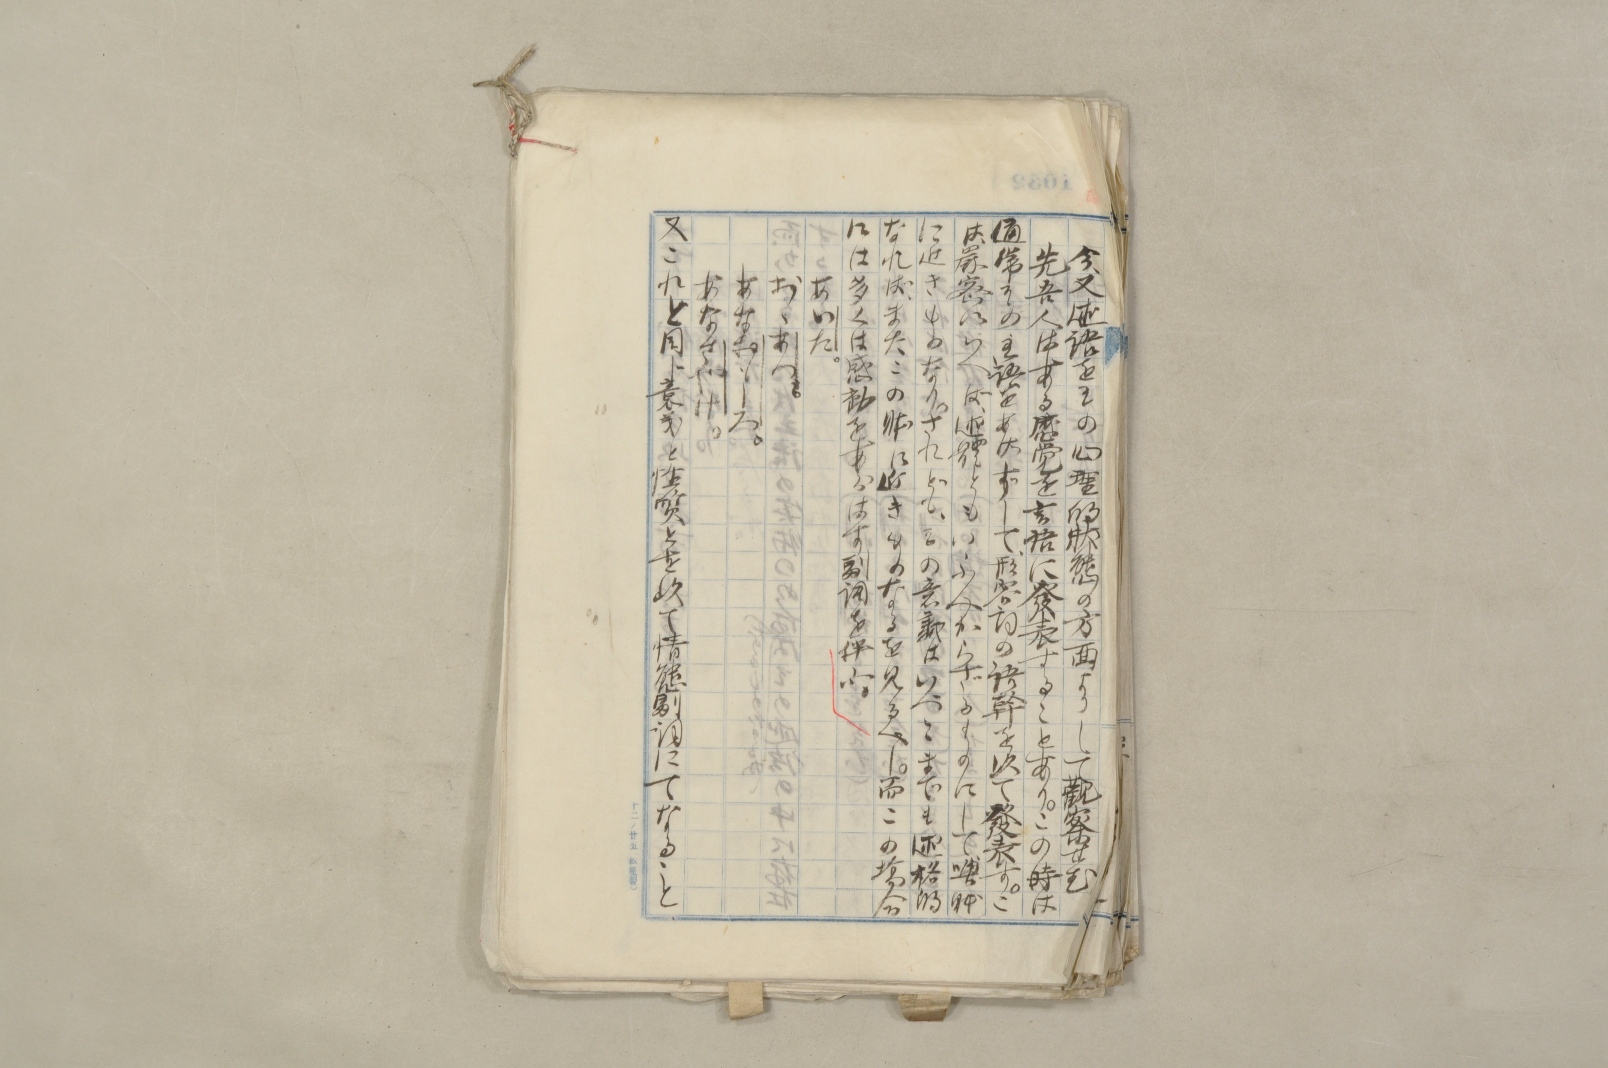 今又述語をその心理的状態の方面よりして觀察せむ
先吾人はある感覚を言語に發表することあり。この時は
通常その主語をあげずして、形容詞の語幹を以て發表す。こ
は嚴密にいへば、述體ともいふべからざるものにして喚體
に近きものなり。されども、その意義はいへどもまでも述格的
なれば、またこの体に近きものなるを見るべし。而この場合
には多くは感動をあらはす副詞を伴ふ。
あいた。
おゝあつ。
あなおもしろ。
あなさやけ。
又これと同じ意義と性質とを以て情態副詞にてなること